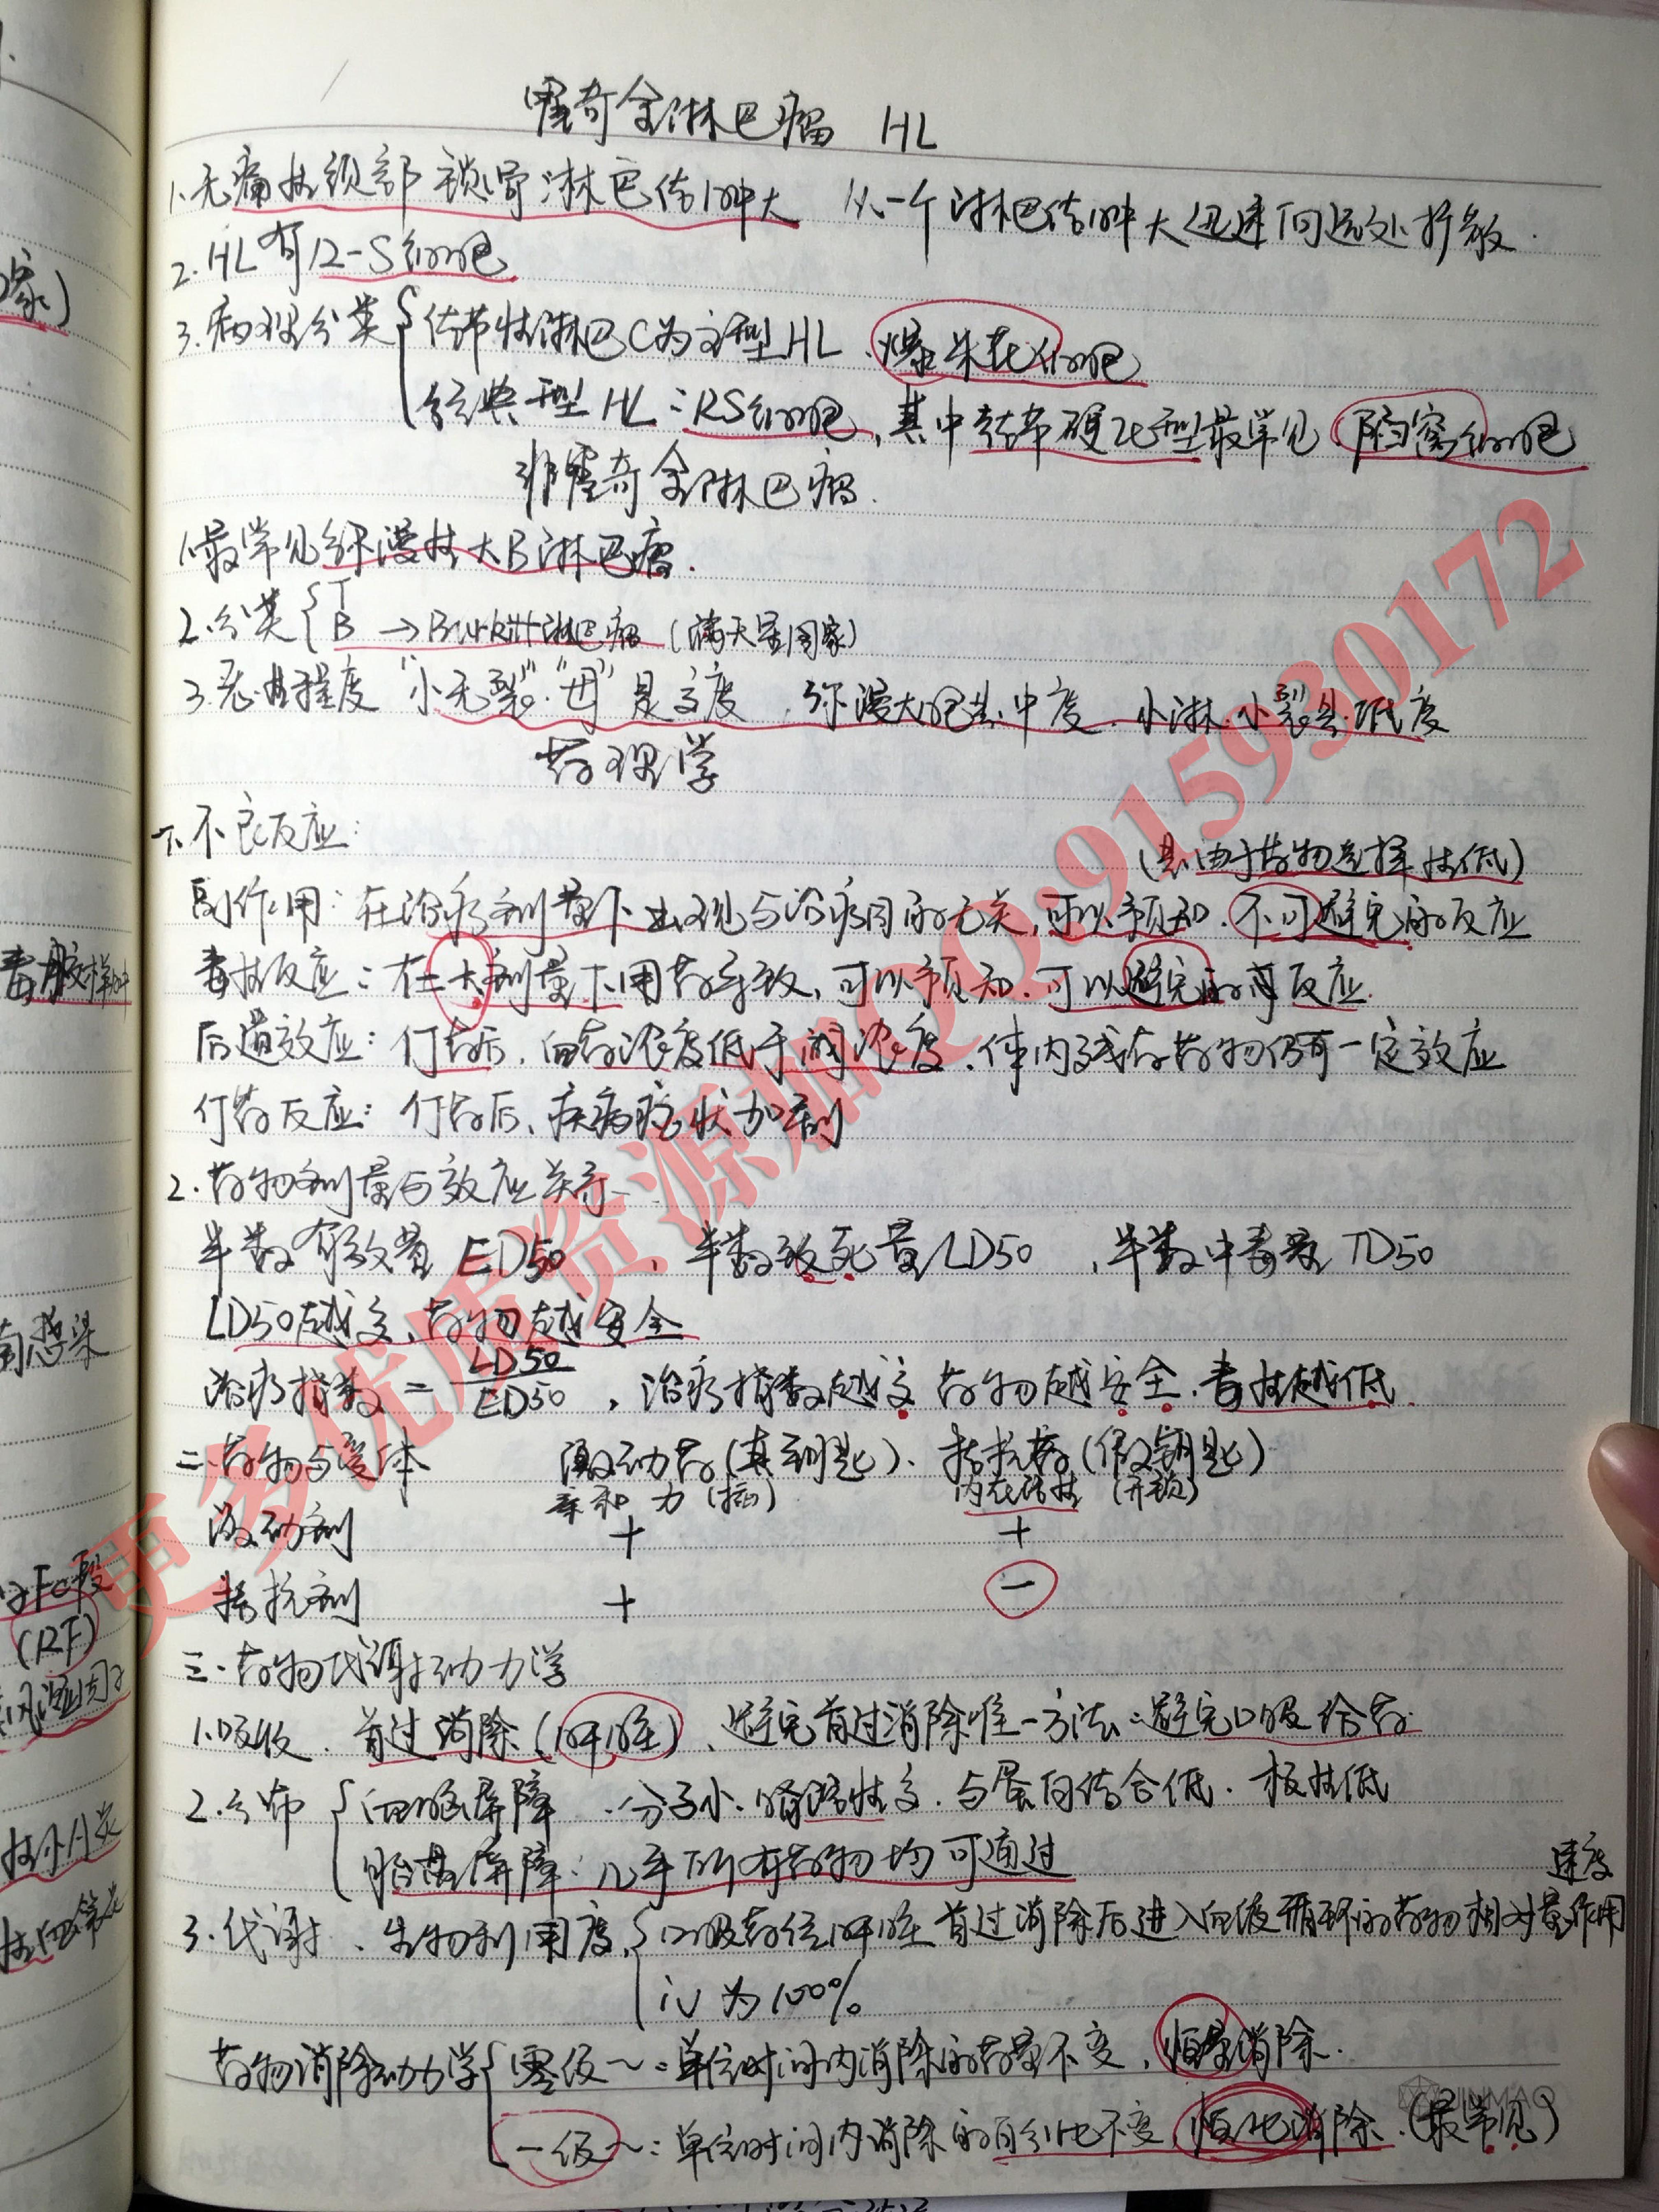 霍奇金淋巴瘤 HL
1.无痛性颈部 锁骨淋巴结肿大 从一个淋巴结肿大迅速向远处扩散.
2.HL有R-S细胞
3.病理分类 结节性淋巴C为主型HL.爆米花细胞
经典型HL:RS细胞,其中结节硬化型最常见.陷窝细胞
非霍奇金淋巴瘤.
1.最常见弥漫性大B淋巴瘤.
2.分类 T
B →Burkitt淋巴瘤(满天星图象)
3.恶性程度 "小无裂""母"是高度.弥漫大胞是中度.小淋.小裂是低度
药理学
一.不良反应:
(是由于药物选择性低)
副作用:在治疗剂量下出现与治疗目的无关,可以预知.不可避免的反应
毒性反应:在大剂量下用药导致,可以预知.可以避免的毒反应.
后遗效应:停药后,血药浓度低于阈浓度.体内残存药物仍有一定效应
停药反应:停药后、疾病症状加剧
2.药物剂量与效应关系
半数有效量 ED50 ,半数致死量LD50 ,半数中毒量TD50
LD50越高、药物越安全
治疗指数 = LD50/ED50 ,治疗指数越高 药物越安全.毒性越低.
二.药物与受体 激动药(真钥匙)、拮抗药(假钥匙)
亲和力(插) 内在活性(开锁)
激动剂 + +
拮抗剂 + -
三.药物代谢动力学
1.吸收.首过消除(肝脏)、避免首过消除唯一方法:避免口服给药
2.分布 血脑屏障:分子小.脂溶性高.与蛋白结合低.极性低
胎盘屏障:几乎所有药物均可通过
速度
3.代谢.生物利用度 口服药经肝脏首过消除后进入血液循环的药物相对量作用
iv为100%
药物消除动力学 零级~:单位时间内消除的药量不变,恒量消除.
一级~:单位时间内消除的百分比不变,恒比消除.(最常见)
毒胶样
菌感染
Fc段
(RF)
更多优质资源加QQ:915930172
JINMAO